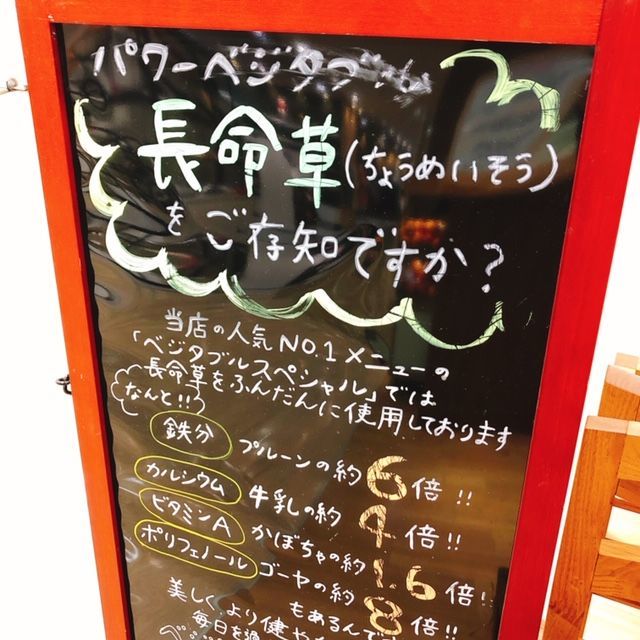 パワーベジタブル
長命草(ちょうめいそう)
をご存知ですか?
当店の人気NO.1メニューの
「ベジタブルスペシャル」では
長命草をふんだんに使用しております
なんと!!
鉄分 プルーンの約6倍!!
カルシウム 牛乳の約4倍!!
ビタミンA かぼちゃの約1.6倍!!
ポリフェノール ゴーヤの約8倍!!
もあるんで
美しく、より健や
毎日を過